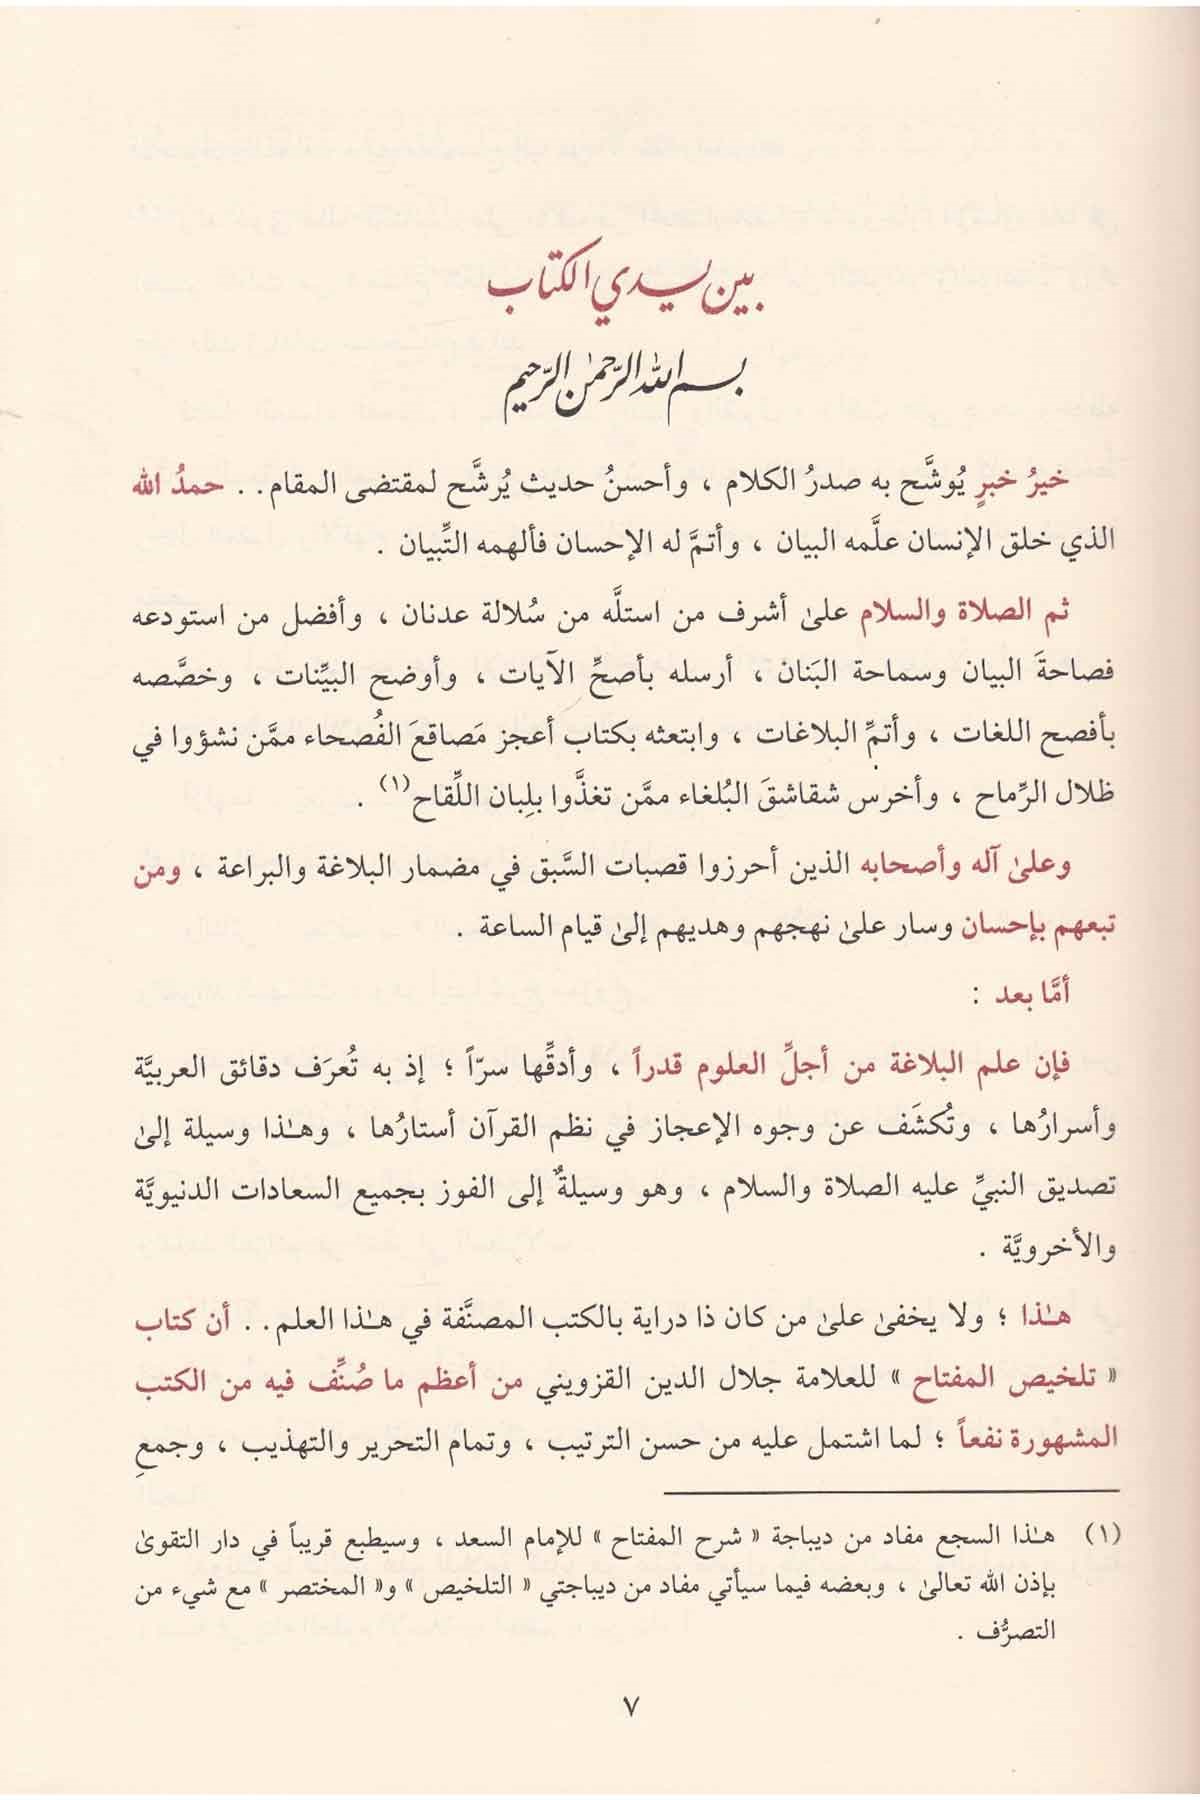 بين يدي الكتاب
بسم الله الرحمٰن الرحيم
خيرُ خبرٍ يُوشَّح به صدرُ الكلام ، وأحسنُ حديث يُرشَّح لمقتضى المقام . . حمدُ الله
الذي خلق الإنسان علَّمه البيان ، وأتمَّ له الإحسان فألهمه التِّبيان .
ثم الصلاة والسلام علىٰ أشرف من استلَّه من سُلالة عدنان ، وأفضل من استودعه
فصاحةَ البيان وسماحة البَنان ، أرسله بأصحِّ الآيات ، وأوضح البيِّنات ، وخصَّصه
بأفصح اللغات ، وأتمِّ البلاغات ، وابتعثه بكتاب أعجز مَصاقعَ الفُصحاء ممَّن نشؤوا في
ظلال الرِّماح ، وأخرس شقاشقَ البُلغاء ممَّن تغذَّوا بلِبان اللِّقاح(١) .
وعلىٰ آله وأصحابه الذين أحرزوا قصبات السَّبق في مضمار البلاغة والبراعة ، ومن
تبعهم بإحسان وسار علىٰ نهجهم وهديهم إلىٰ قيام الساعة .
أمَّا بعد :
فإن علم البلاغة من أجلِّ العلوم قدراً ، وأدقِّها سرّاً ؛ إذ به تُعرَف دقائق العربيَّة
وأسرارُها ، وتُكشَف عن وجوه الإعجاز في نظم القرآن أستارُها ، وهـٰذا وسيلة إلىٰ
تصديق النبيِّ عليه الصلاة والسلام ، وهو وسيلةٌ إلى الفوز بجميع السعادات الدنيويَّة
والأخرويَّة .
هـٰذا ؛ ولا يخفىٰ علىٰ من كان ذا دراية بالكتب المصنَّفة في هـٰذا العلم . . أن كتاب
« تلخيص المفتاح » للعلامة جلال الدين القزويني من أعظم ما صُنِّف فيه من الكتب
المشهورة نفعاً ؛ لما اشتمل عليه من حسن الترتيب ، وتمام التحرير والتهذيب ، وجمعِ
(١) هـٰذا السجع مفاد من ديباجة « شرح المفتاح » للإمام السعد ، وسيطبع قريباً في دار التقوىٰ
بإذن الله تعالىٰ ، وبعضه فيما سيأتي مفاد من ديباجتي « التلخيص » و« المختصر » مع شيء من
التصرُّف .
٧